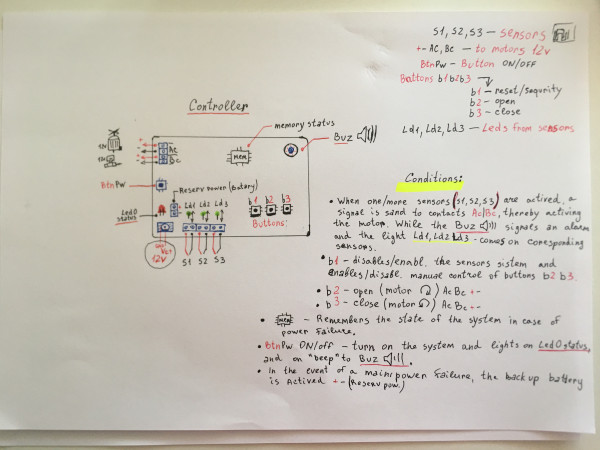 S1, S2, S3 — sensors
+- AC, BC — to motors 12v
BtnPw — Button ON/OFF
Battons b1 b2 b3
b1 - reset/sequrity
b2 - open
b3 - close
Ld1, Ld2, Ld3 — Leds from sensors
Controller
memory status
Buz
MEM
12v
AC
BC
12v
BtnPw
Reserv power (Batary)
Led0
status
Ld1 Ld2 Ld3
b1 b2 b3
Buttons:
12v
S1 S2 S3
Conditions:
• When one/more sensors (S1, S2, S3) are actived, a
signal is send to contacts Ac/Bc, thereby activing
the motor. While the Buz signals an alarm
and the light Ld1, Ld2 Ld3 - comes on coresponding
sensors.
• b1 - disables/enabl. the sensors sistem and
enables/disabl. manual control of buttons b2 b3.
• b2 - open (motor) Ac Bc +-
• b3 - close (motor) Ac Bc +-
• MEM - Remembers the state of the system in case of
power failure.
• BtnPw ON/off - turn on the system and lights on Led0 status,
and on "beep" to Buz.
• In the event of a main power failure, the backup battery
is Actived +- (Reserv pow.)